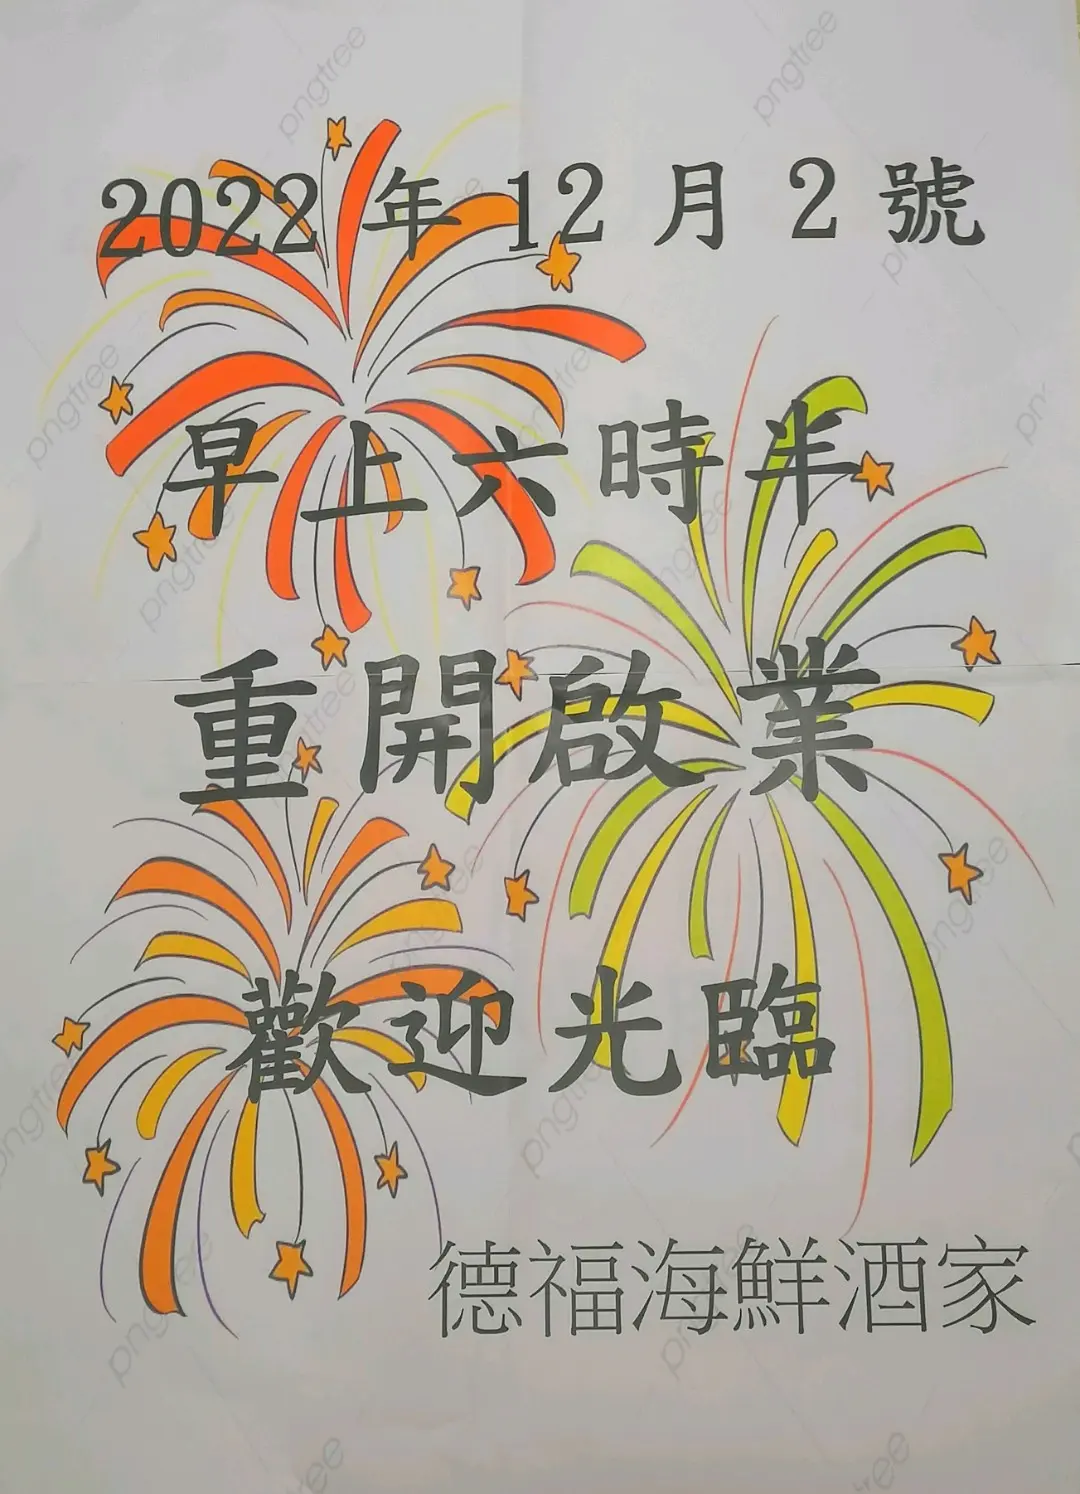 2022年12月2號
早上六時半
重開啟業
歡迎光臨
德福海鮮酒家
pngtree